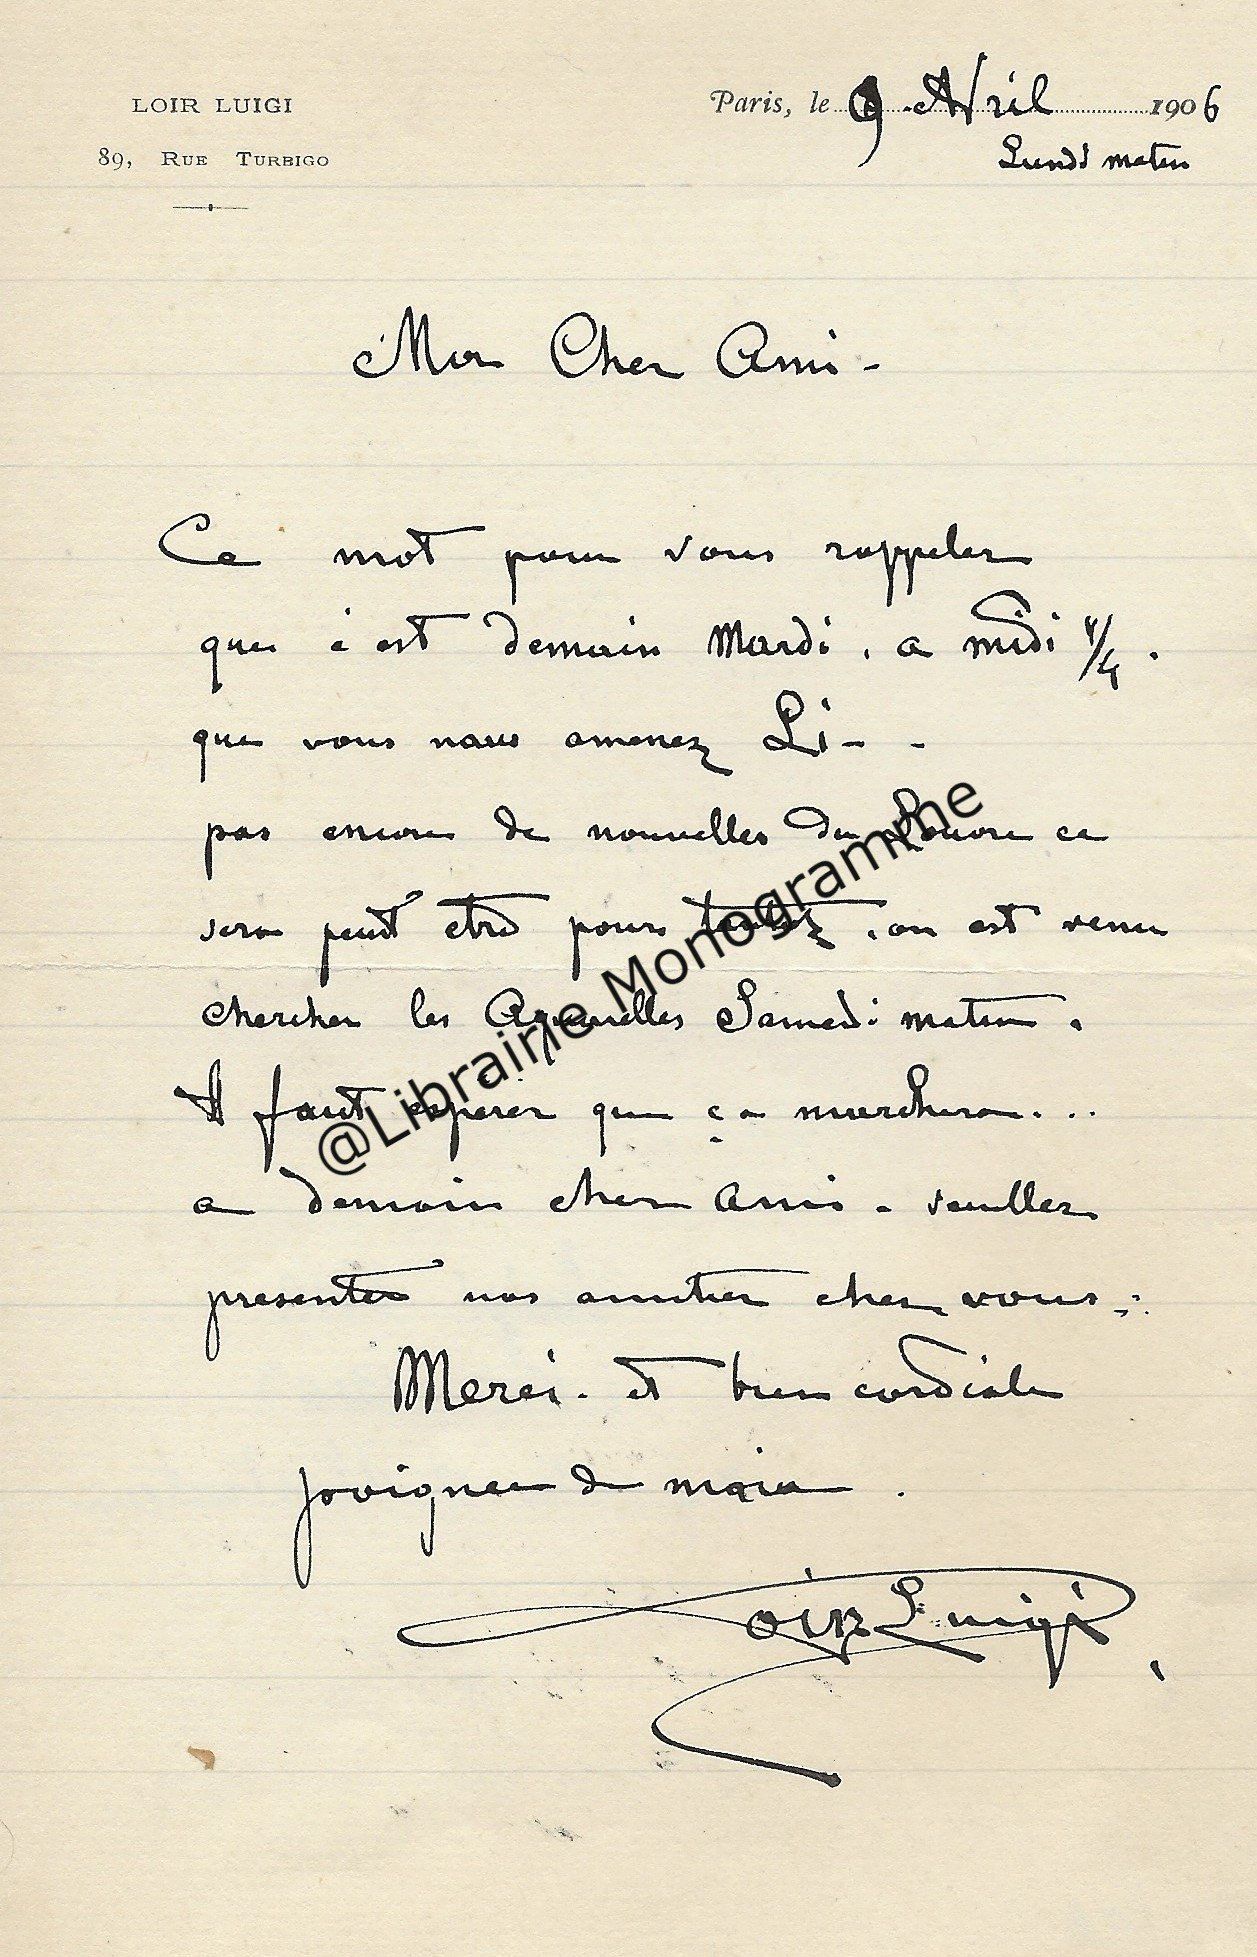 LOIR LUIGI
89, RUE TURBIGO
Paris, le 9 Avril 1906
Lundi matin
Mon Cher Ami -
Ce mot pour vous rappeler
que c'est demain Mardi. a midi 1/4.
que vous nous amenez Li - -
pas encore de nouvelles du Louvre ce
sera peut etre pour tantot. on est venu
chercher les Aquarelles Samedi matin.
Il faut esperer que ça marchera...
a demain cher Ami. veuillez
presenter nos amities chez vous.
Merci. et bien cordiale
poignée de main.
Loir Luigi
@Librairie Monogramme